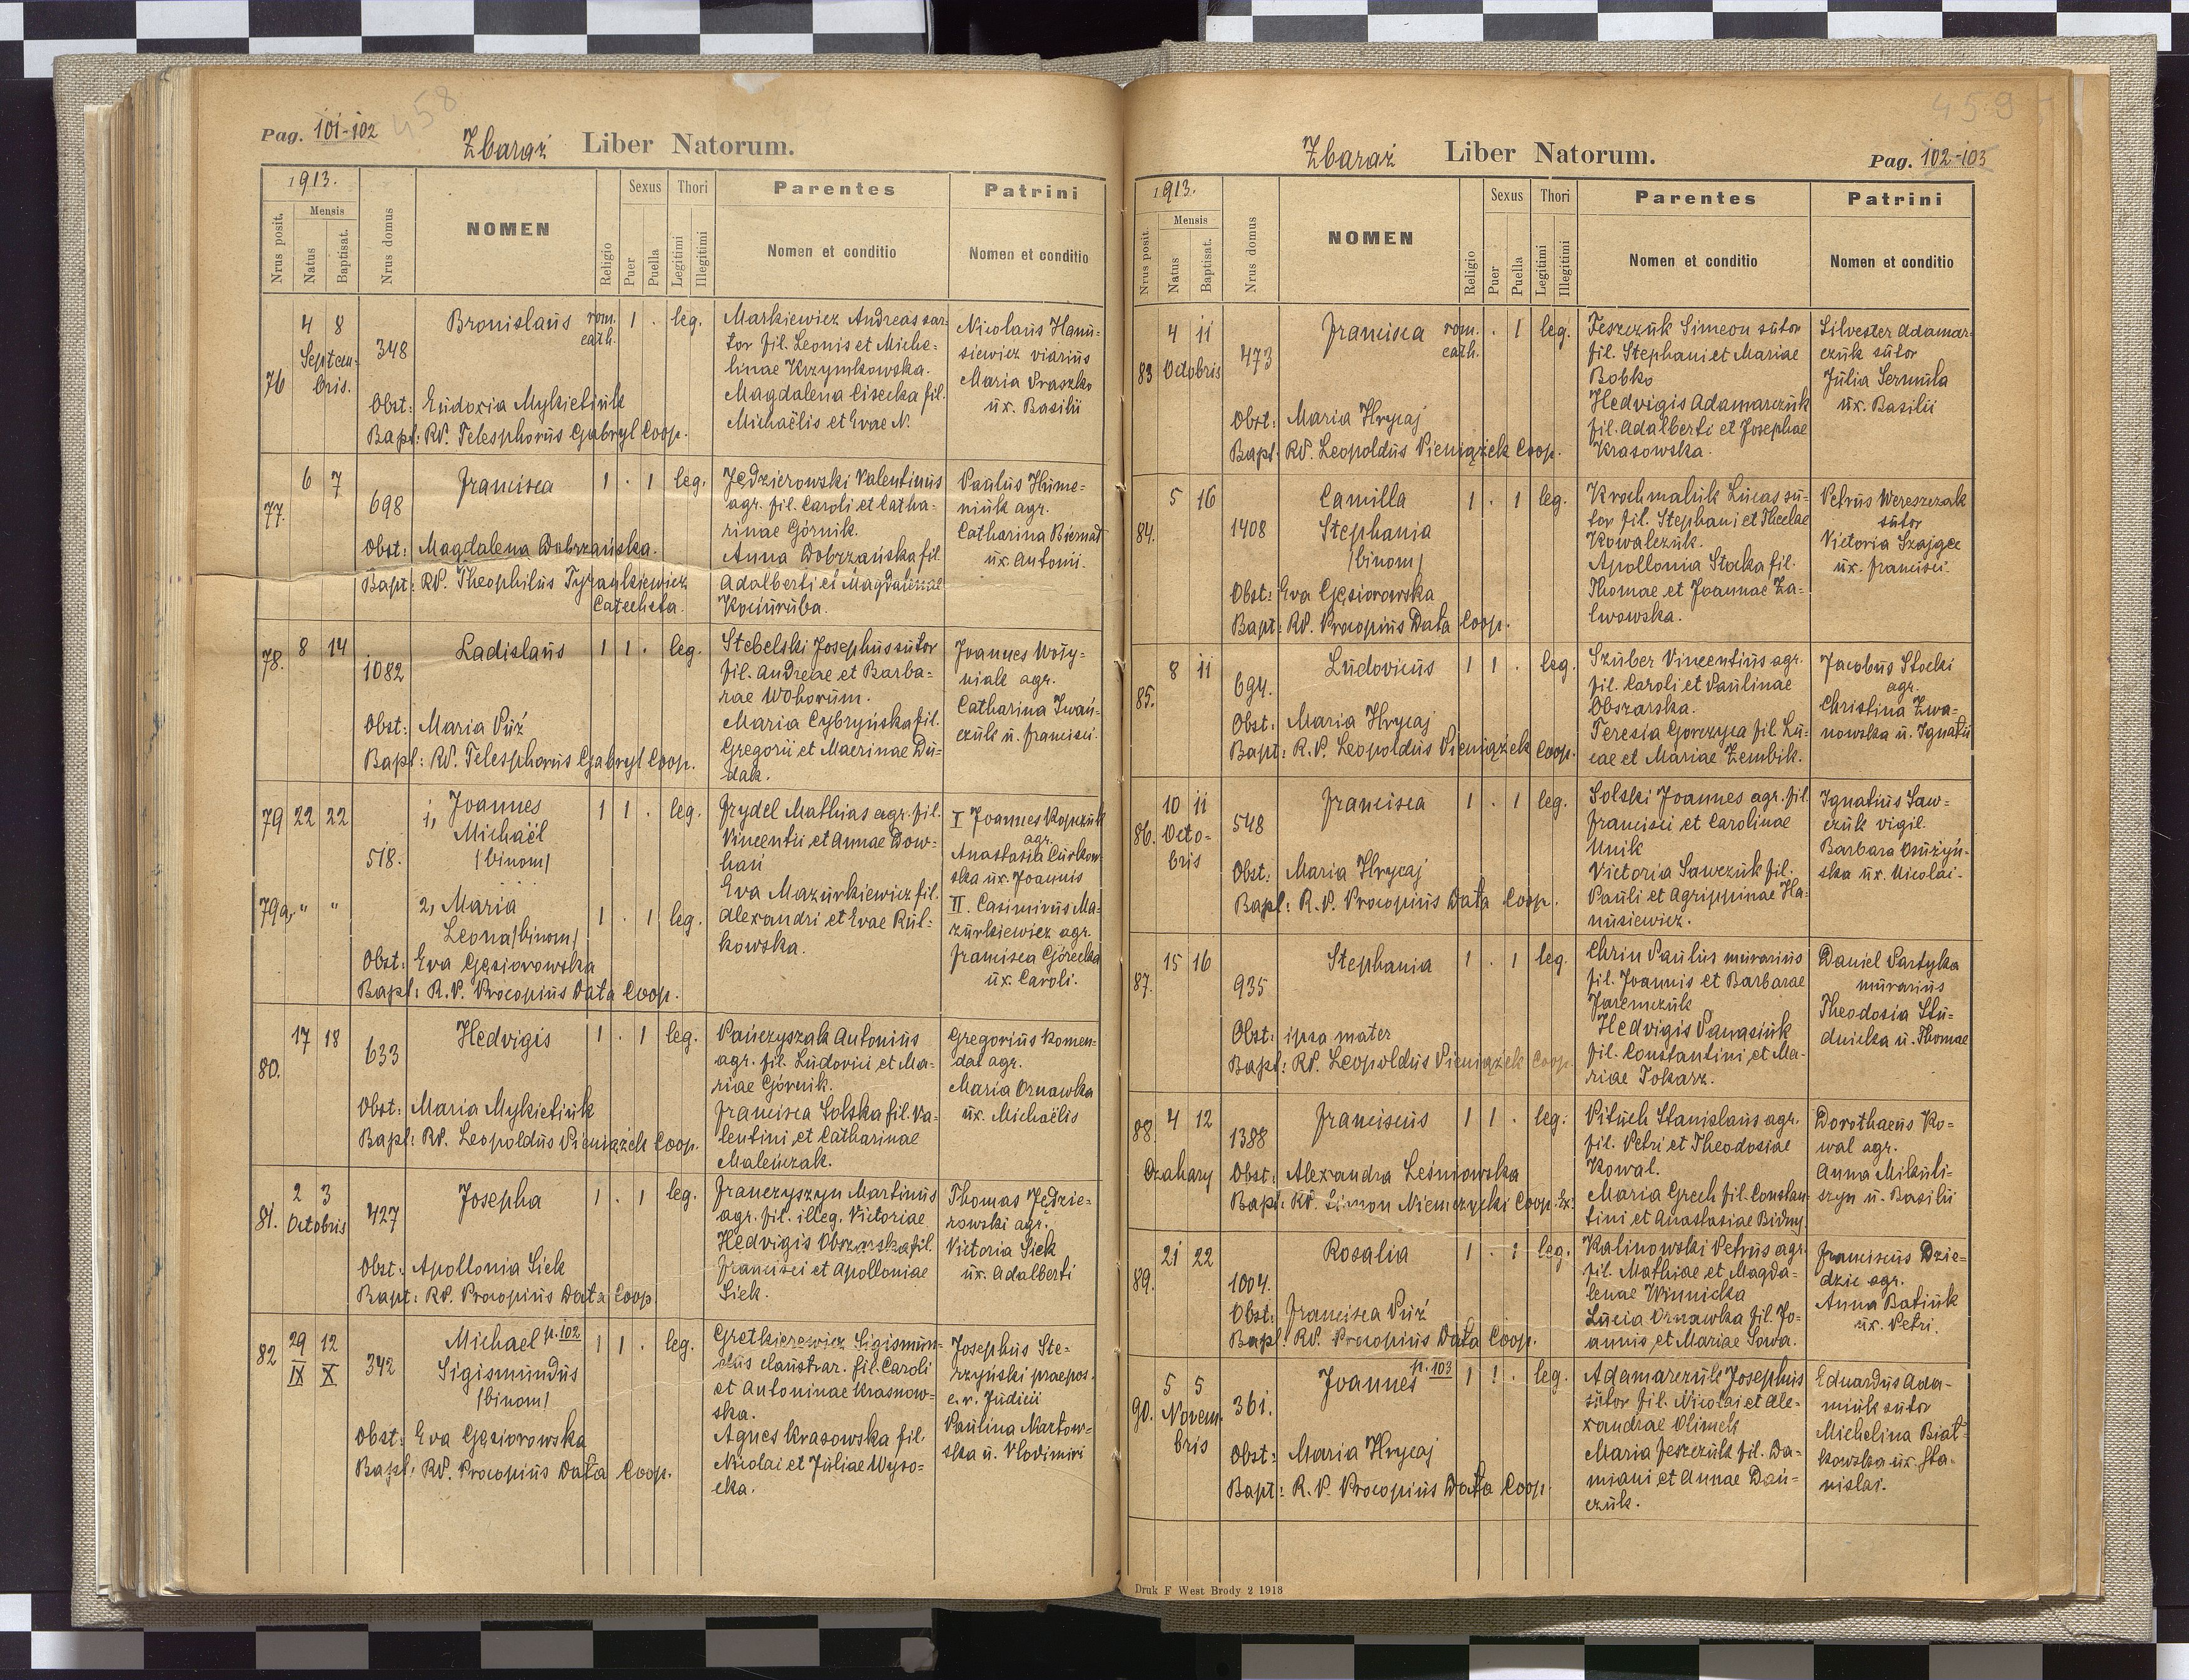 Pag. 101-102
458
Zbaraż Liber Natorum.
1913.
Nrus posit.
Mensis
Natus
Baptisat.
Nrus domus
NOMEN
Religio
Sexus
Puer
Puella
Thori
Legitimi
Illegitimi
Parentes
Nomen et conditio
Patrini
Nomen et conditio
76
4 8
Septem-
bris.
348
Bronislaus
rom.
cath.
1 . leg.
Markiewicz Andreas sar-
tor fil. Leonis et Miche-
linae Krzymkowska.
Magdalena Cisecka fil.
Michaëlis et Evae N.
Nicolaus Hanu-
siewicz viarius
Maria Praszko
ux. Basilii
Obst: Eudoxia Mykietiuk
Bapt: RP. Telesphorus Gabryl Coop.
77.
6 7
698
Francisca
1 . 1 leg.
Jędzierowski Valentinus
agr. fil. Caroli et Catha-
rinae Górnik.
Anna Dobrzańska fil.
Adalberti et Magdalenae
Kociuruba.
Paulus Hume-
niuk agr.
Catharina Biernat
ux. Antonii.
Obst: Magdalena Dobrzańska.
Bapt: RP. Theophilus Tyrankiewicz
Catecheta.
78.
8 14
1082
Ladislaus
1 1 . leg.
Stebelski Josephus sutor
fil. Andreae et Barba-
rae Wohorum.
Maria Cybryńska fil.
Gregorii et Macrinae Du-
dak.
Joannes Woźy-
niak agr.
Catharina Iwań-
czuk u. Francisci.
Obst: Maria Puź
Bapt: RP. Telesphorus Gabryl Coop.
79 22 22
518.
1, Joannes
Michaël
/binom/
1 1 . leg.
Frydel Mathias agr. fil.
Vincentii et Annae Dow-
hań
Eva Mazurkiewicz fil.
Alexandri et Evae Rul-
kowska.
I Joannes Kopczuk
agr.
Anastasia Curkow-
ska ux. Joannis
II. Casimirus Ma-
zurkiewicz agr.
Francisca Górecka
ux. Caroli.
79a, " "
2, Maria
Leona /binom/
1 . 1 leg.
Obst: Eva Gęsiorowska
Bapt: R.P. Procopius Data Coop.
80.
17 18
633
Hedvigis
1 . 1 leg.
Pańczyszak Antonius
agr. fil. Ludovici et Ma-
riae Górnik.
Francisca Solska fil. Va-
lentini et Catharinae
Maleńczak.
Gregorius Komen-
dat agr.
Maria Ornawka
ux. Michaëlis
Obst: Maria Mykietiuk
Bapt: RP. Leopoldus Pieniążek Coop.
81.
2 3
Octobris
427
Josepha
1 . 1 leg.
Franczyszyn Martinus
agr. fil. illeg. Victoriae
Hedvigis Obszarska fil.
Francisci et Apolloniae
Siek.
Thomas Jędzie-
rowski agr.
Victoria Siek
ux. Adalberti
Obst: Apollonia Siek
Bapt: RP. Procopius Data Coop.
82
29 12
IX X
342
Michael p. 102
Sigismundus
/binom/
1 1 . leg.
Gretkierewicz Sigismun-
dus claustrar. fil. Caroli
et Antoninae Krasnow-
ska.
Agnes Krasowska fil.
Nicolai et Juliae Wyso-
cka.
Josephus Ste-
rzyński praepos.
c. r. Judicii
Paulina Martow-
ska u. Vlodimiri
Obst: Eva Gęsiorowska
Bapt: RP. Procopius Data Coop.
459
Zbaraż Liber Natorum.
Pag. 102-103
1913.
Nrus posit.
Mensis
Natus
Baptisat.
Nrus domus
NOMEN
Religio
Sexus
Puer
Puella
Thori
Legitimi
Illegitimi
Parentes
Nomen et conditio
Patrini
Nomen et conditio
83
4 11
Octobris
473
Francisca
rom.
cath.
. 1 leg.
Feszczuk Simeon sutor
fil. Stephani et Mariae
Bobko
Hedvigis Adamarczuk
fil. Adalberti et Josephae
Krasowska.
Silvester Adamar-
czuk sutor
Julia Sermula
ux. Basilii
Obst: Maria Hrycaj
Bapt: RP. Leopoldus Pieniążek Coop.
84.
5 16
1408
Camilla
Stephania
/binom/
1 . 1 leg.
Krochmaluk Lucas su-
tor fil. Stephani et Theclae
Kowalczuk.
Apollonia Stocka fil.
Thomae et Joannae Za-
lwowska.
Petrus Wereszczak
sutor
Victoria Szajgec
ux. Francisci.
Obst: Eva Gęsiorowska
Bapt: RP. Procopius Data Coop.
85.
8 11
694.
Ludovicus
1 1 . leg.
Szuber Vincentius agr.
fil. Caroli et Paulinae
Obszarska.
Teresia Gorczyca fil. Lu-
cae et Mariae Zembik.
Jacobus Stocki
agr.
Christina Zwa-
nowska u. Ignatii
Obst: Maria Hrycaj
Bapt: R.P. Leopoldus Pieniążek Coop.
86.
10 11
Octo-
bris
548
Francisca
1 . 1 leg.
Solski Joannes agr. fil.
Francisci et Carolinae
Unik
Victoria Sawczuk fil.
Pauli et Agrippinae Ha-
nusiewicz.
Ignatius Saw-
czuk vigil.
Barbara Osużyń-
ska ux. Nicolai.
Obst: Maria Hrycaj
Bapt: R.P. Procopius Data Coop.
87.
15 16
935
Stephania
1 . 1 leg.
Chrin Paulus murarius
fil. Joannis et Barbarae
Jaremczuk
Hedvigis Panasiuk
fil. Constantini et Ma-
riae Tokarz.
Daniel Partyka
murarius
Theodosia Stu-
dnicka u. Thomae
Obst: ipsa mater
Bapt: RP. Leopoldus Pieniążek Coop.
88.
4 12
Czahary
1388
Franciscus
1 1 . leg.
Pituch Stanislaus agr.
fil. Petri et Theodosiae
Kowal.
Maria Grech fil. Constan-
tini et Anastasiae Bidny.
Dorothaeus Ko-
wal agr.
Anna Mikuli-
szyn u. Basilii
Obst: Alexandra Leśniowska
Bapt: RP. Simon Niemczycki Coop. Ex:
89.
21 22
1004.
Rosalia
1 . 1 leg.
Kalinowski Petrus agr.
fil. Mathiae et Magda-
lenae Winnicka
Lucia Ornawka fil. Jo-
annis et Mariae Sowa.
Franciscus Dzie-
dzic agr.
Anna Batiuk
ux. Petri.
Obst: Francisca Puź
Bapt: RP. Procopius Data Coop.
90.
5 5
Novem-
bris
361.
Joannes p. 103
1 1 . leg.
Adamarczuk Josephus
sutor fil. Nicolai et Ale-
xandrae Olimek
Maria Feszczuk fil. Da-
miani et Annae Dań-
czuk.
Eduardus Ada-
miuk sutor
Michelina Biał-
kowska ux. Sta-
nislai.
Obst: Maria Hrycaj
Bapt: R.P. Procopius Data Coop.
Druk F West Brody 2 1913